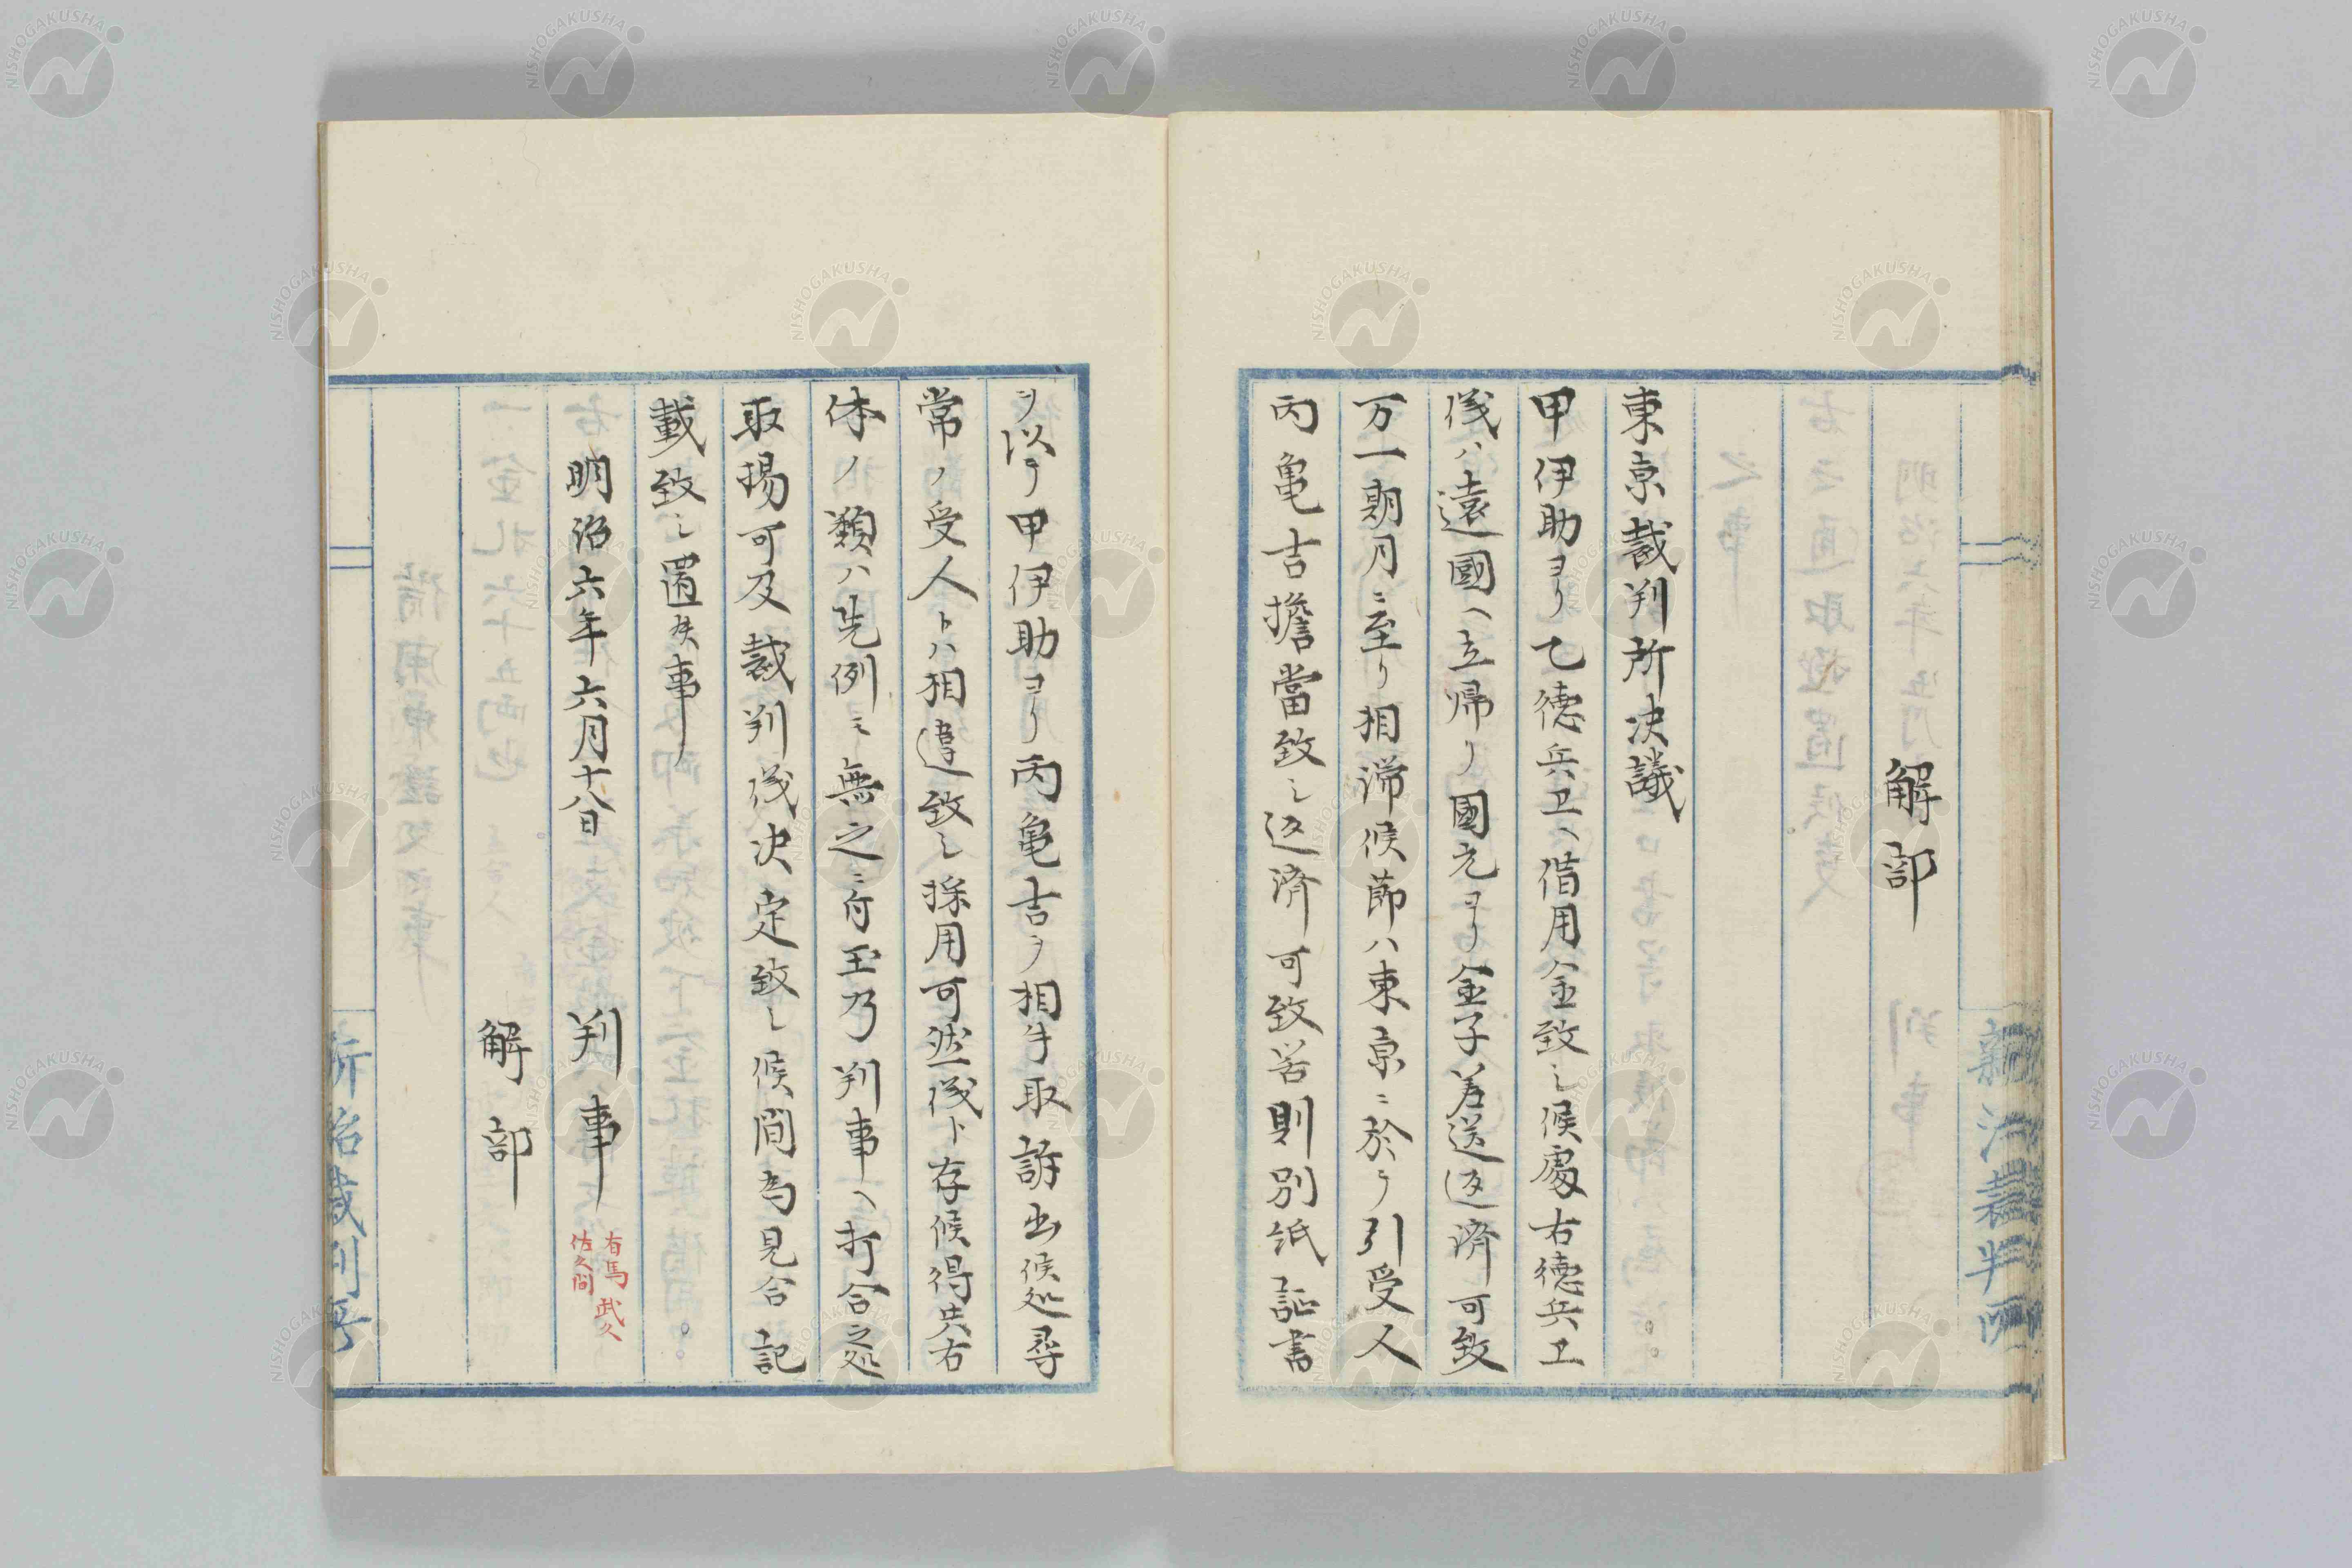 解部
東京裁判所決議
甲伊助ヨリ乙徳兵卫ヘ借用金致シ候處右徳兵卫
儀ハ遠國ヘ立帰リ國元ヨリ金子差送返済可致
万一期月ニ至リ相滞候節ハ東京ニ於テ引受人
丙亀吉擔當致シ返済可致筈則別紙証書
ヲ以テ甲伊助ヨリ丙亀吉ヲ相手取訴出候処尋
常ノ受人トハ相違致シ採用可然儀ト存候得共右
体ノ類ハ先例モ無之ニ付玉乃判事ヘ打合之処
取揚可及裁判儀决定致シ候間為見合記
載致シ置候事
明治六年六月十八日 判事 有馬 武久 佐久間
解部
新治裁判所
新治裁判所
NISHOGAKUSHA